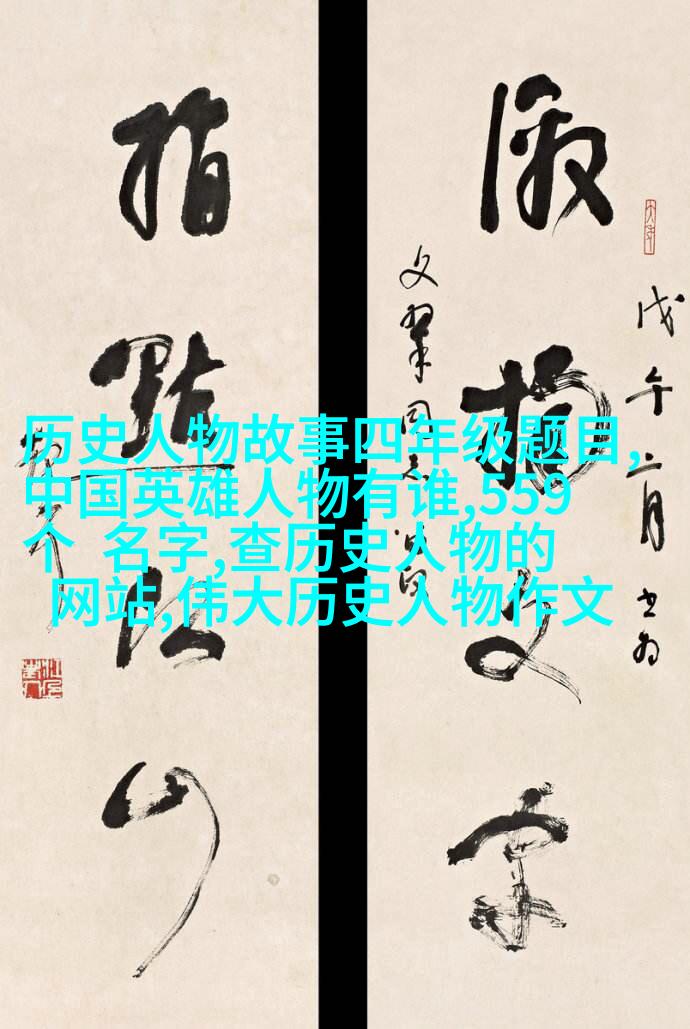 历史人物故事四年级题目,
中国英雄人物有谁,559
个 名字,查历史人物的
网站,伟大历史人物作文
激扬文字
戊午二月书为
指點江山